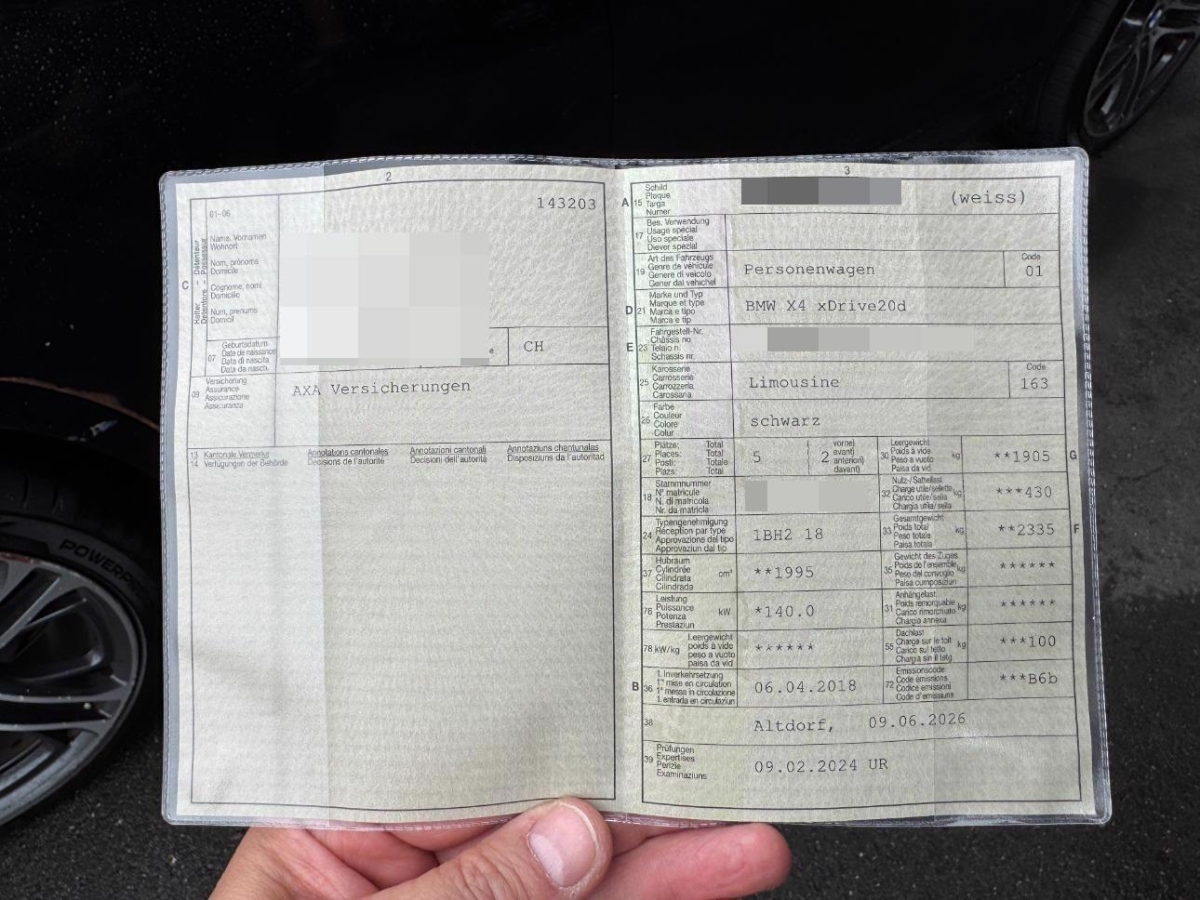 2
143203
01-06
C
Halter - Détenteur
Detentore - Possessur
Name, Vornamen
Wohnort
Nom, prénoms
Domicile
Cognome, nomi
Domicilio
Num, prenums
Domicil
07
Geburtsdatum
Date de naissance
Data di nascita
Data da nasch.
CH
09
Versicherung
Assurance
Assicurazione
Assicuranza
AXA Versicherungen
13 Kantonale Vermerke
14 Verfügungen der Behörde
Annotations cantonales
Décisions de l'autorité
Annotazioni cantonali
Decisioni dell'autorità
Annotaziuns chantunalas
Disposiziuns da l'autoritad
3
A 15
Schild
Plaque
Targa
Numer
(weiss)
17
Bes. Verwendung
Usage spécial
Uso speciale
Diever spezial
19
Art des Fahrzeugs
Genre de véhicule
Genere di veicolo
Gener dal vehichel
Personenwagen
Code
01
D 21
Marke und Typ
Marque et type
Marca e tipo
Marca e tip
BMW X4 xDrive20d
E 23
Fahrgestell-Nr.
Châssis no
Telaio n.
Schassis nr.
25
Karosserie
Carrosserie
Carrozzeria
Carossaria
Limousine
Code
163
26
Farbe
Couleur
Colore
Colur
schwarz
27
Plätze: Total
Places: Total
Posti: Totale
Plazs: Total
5
( 2
vorne)
avant)
anteriori)
davant)
30
Leergewicht
Poids à vide
Peso a vuoto
Paisa da vid
kg
**1905
G
18
Stammnummer
N° matricule
N. di matricola
Nr. da matricla
32
Nutz-/Sattellast
Charge utile/sellette
Carico utile/sella
Chargia utila/sella
kg
***430
24
Typengenehmigung
Réception par type
Approvazione del tipo
Approvaziun dal tip
1BH2 18
33
Gesamtgewicht
Poids total
Peso totale
Paisa totala
kg
**2335
F
37
Hubraum
Cylindrée
Cilindrata
Cilindrada
cm³
**1995
35
Gewicht des Zuges
Poids de l'ensemble
Peso del convoglio
Paisa cumposiziun
kg
******
76
Leistung
Puissance
Potenza
Prestaziun
kW
*140.0
31
Anhängelast
Poids remorquable
Carico rimorchiato
Chargia annexa
kg
******
78 kW/kg
Leergewicht
poids à vide
peso a vuoto
paisa da vid
******
55
Dachlast
Charge sur le toit
Carico sul tetto
Chargia sin il tetg
kg
***100
B 36
1. Inverkehrsetzung
1re mise en circulation
1a messa in circolazione
1. entrada en circulaziun
06.04.2018
72
Emissionscode
Code émissions
Codice emissioni
Code d'emissiuns
***B6b
38
Altdorf, 09.06.2026
39
Prüfungen
Expertises
Perizie
Examinaziuns
09.02.2024 UR